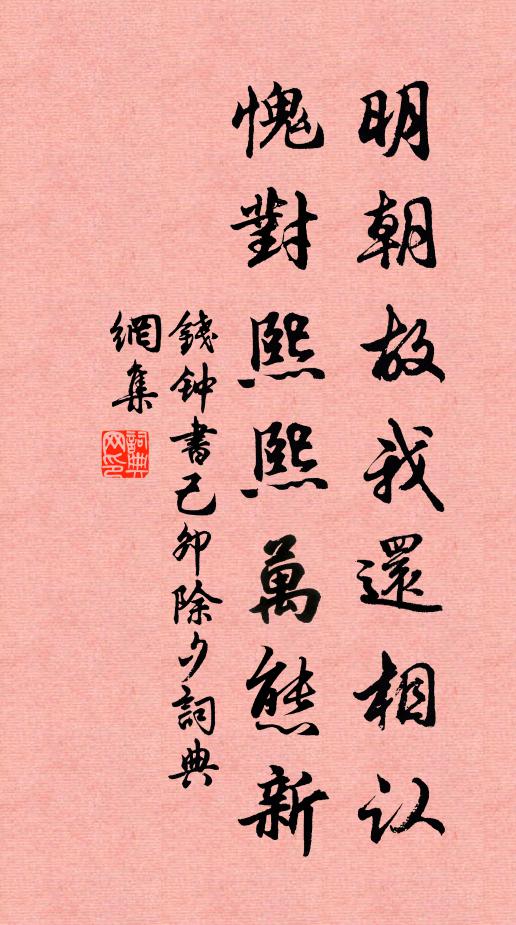 明朝故我還相认
愧對熙熙萬態新
錢钟書己卯除夕詞典
網集
詞典网印